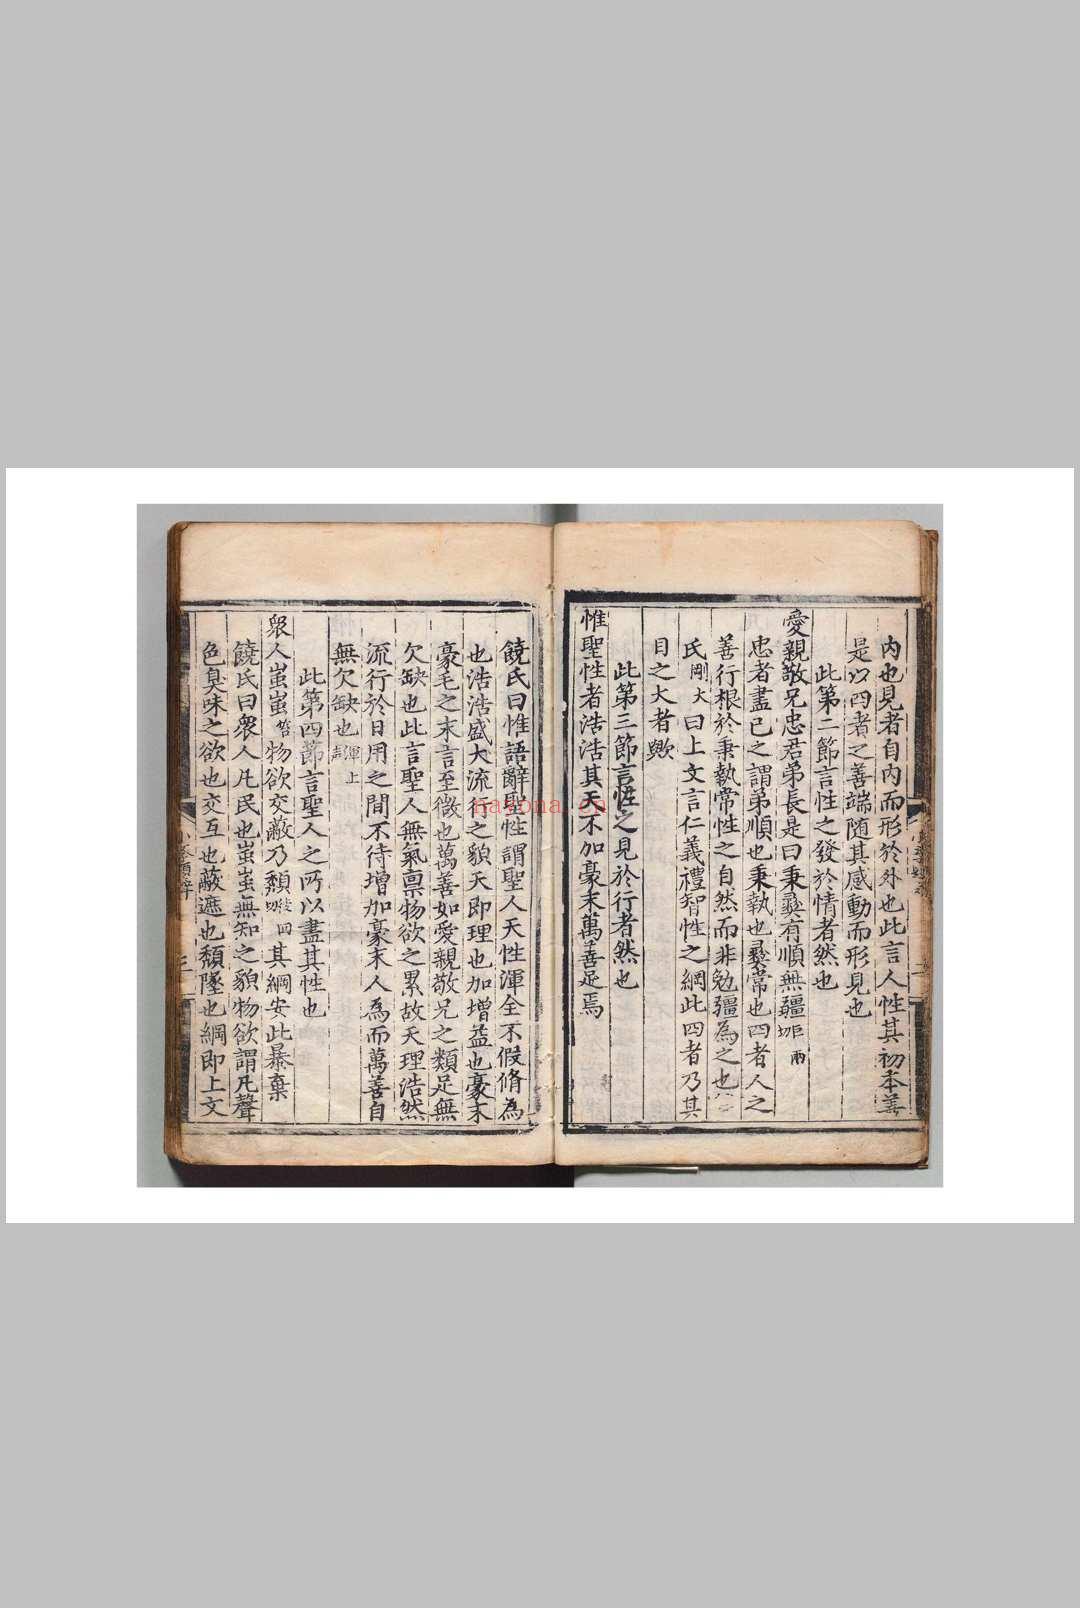 內也見者自內而形於外也此言人性其初本善
是以四者之善端随其感動而形見也
此第二節言性之發於情者然也
愛親敬兄忠君弟長是曰秉彝有順無疆
忠者盡已之謂弟順也秉執也彝常也四者人之
善行根於秉執常性之自然而非勉彊為之也
氏剛大曰上文言仁義禮智性之綱此四者乃其
目之大者歟
此第三節言性之見於行者然也
惟聖性者浩浩其天不加豪末萬善足焉
饒氏曰惟語辭聖性謂聖人天性渾全不假脩為
也浩浩盛大流行之貌天即理也加增益也豪末
豪毛之末言至微也萬善如愛親敬兄之類足無
欠缺也此言聖人無氣禀物欲之累故天理浩然
流行於日用之間不待增加豪末人為而萬善自
無欠缺也渾上声
此第四節言聖人之所以盡其性也
衆人蚩蚩物欲交蔽乃頹其綱安此暴棄
饒氏曰衆人凡民也蚩蚩無知之貌物欲謂凡聲
色臭味之欲也交互也蔽遮也頹墜也綱即上文
nayona.cn